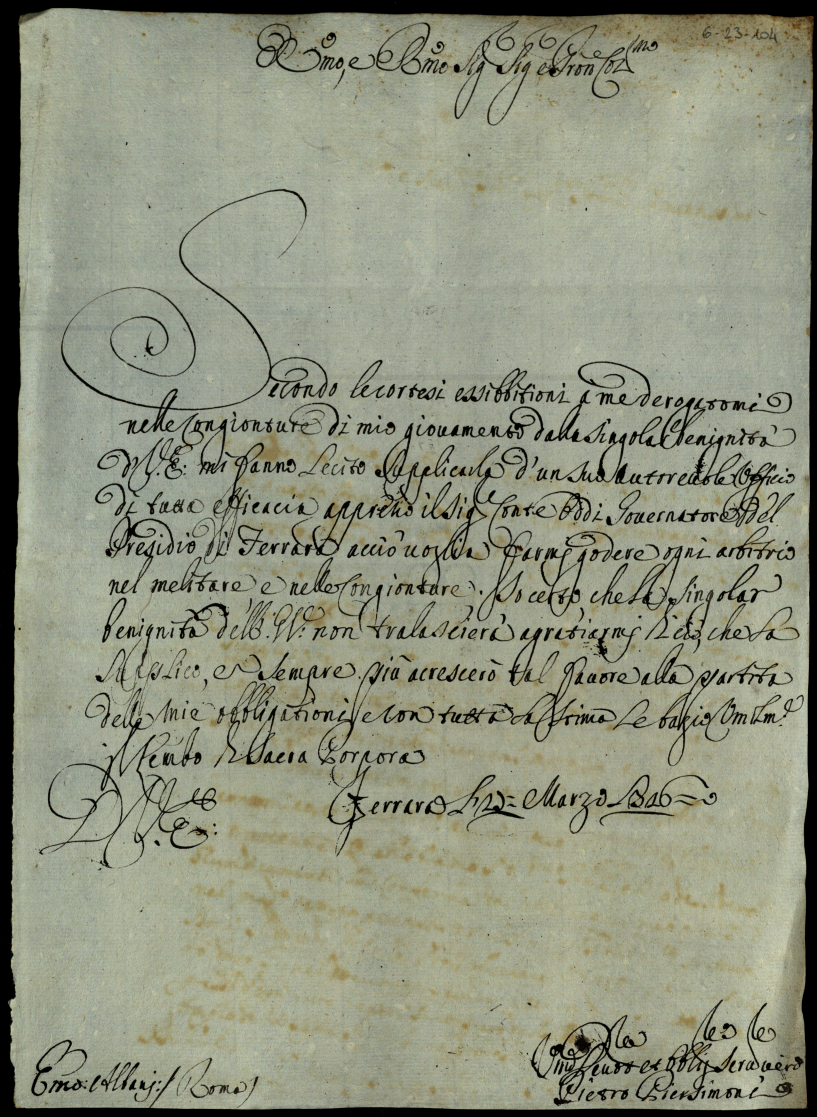 6-23-104
Emo, e Rmo Sig Sig e Pron Col mo
Secondo le cortesi essibbitioni a me derogatomi
nelle congionture di mio giovamento dalla singolar benignità
D V. E: mi fanno lecito supplicarla d'un suo autorevole officio
di tutta efficacia appresso il Sig Conte Governatore del
Presidio di Ferrara acciò voglia farmj godere ogni arbitrio
nel melitare e nelle congionture. So certo che la singolar
benignità dell' non tralascierà agratiarmj che la
supplico, e sempre più acrescerò tal favore alla partita
delle mie obbligationi, e con tutta la stima le bagio Um
il lembo Sacra Porpora
D V. E:
Ferrara Marzo
Servo et Oblig Serv vero
Emo: Albanj:/ Roma/
Pietro Piersimoni